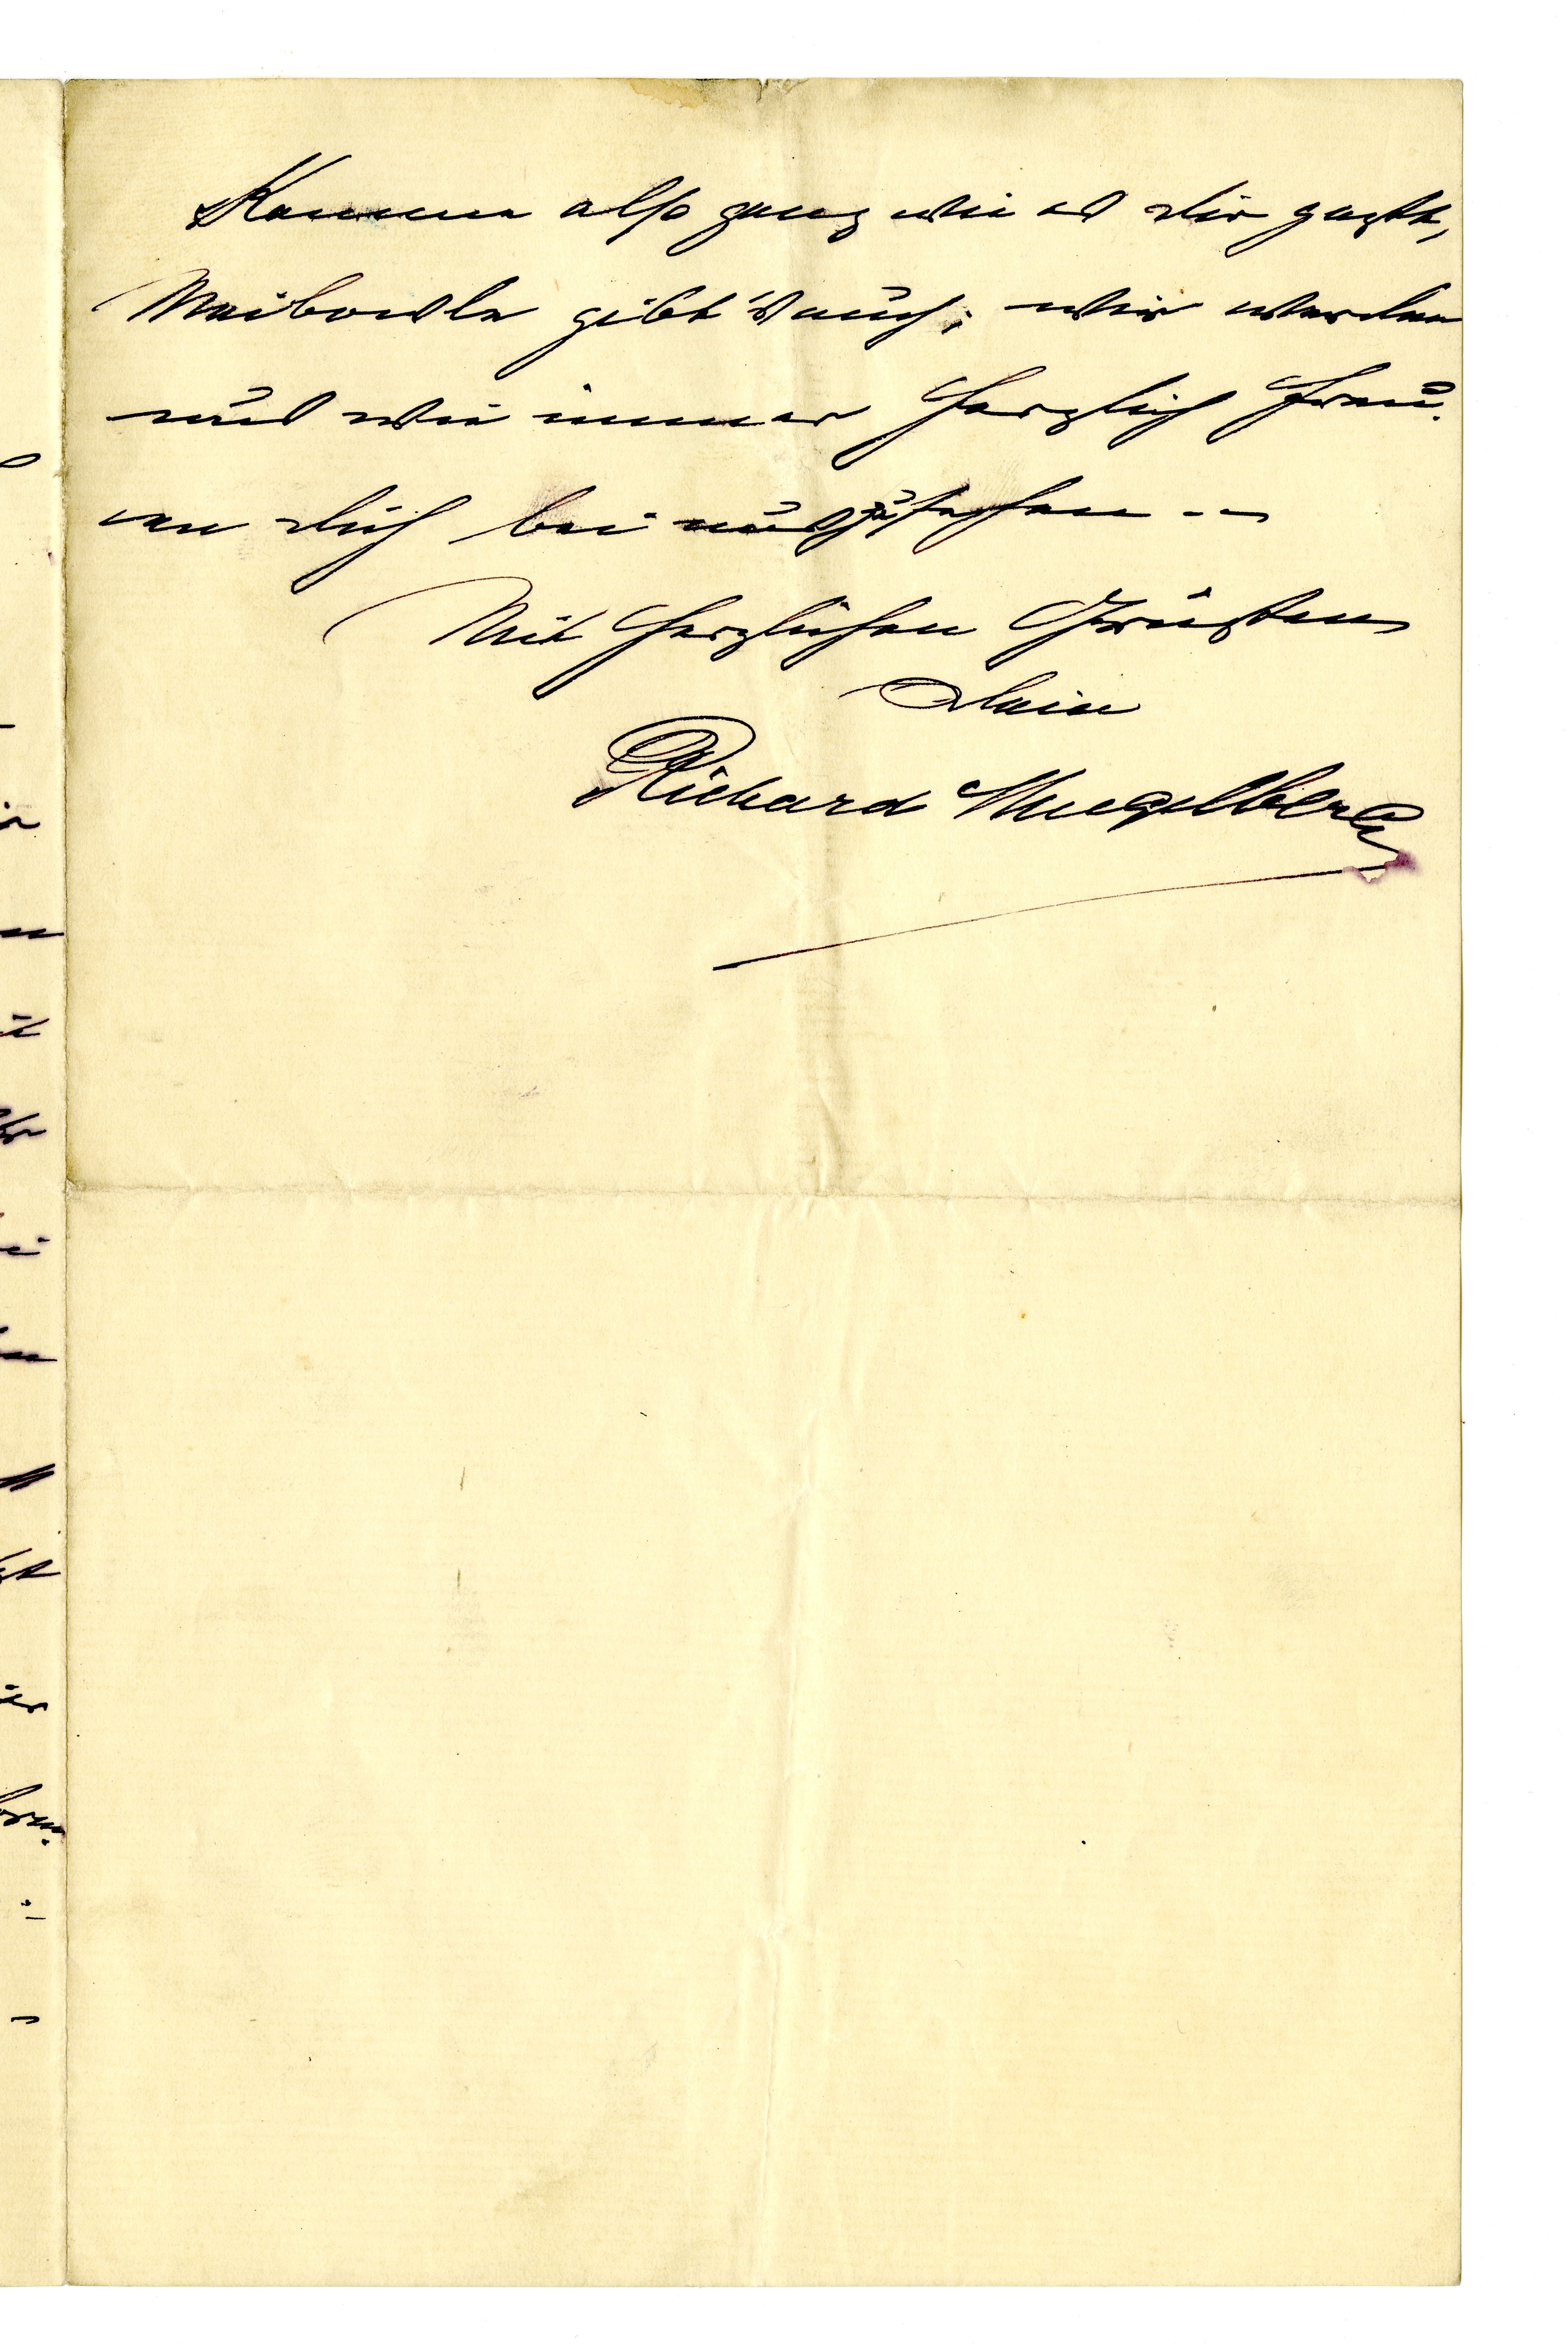 Komme also ganz wie es dir paßt,
Maibowle gibt's auch; wir werden
uns wie immer herzlich freu-
en dich bei uns zu sehen --
Mit herzlichen Grüßen
dein
Richard